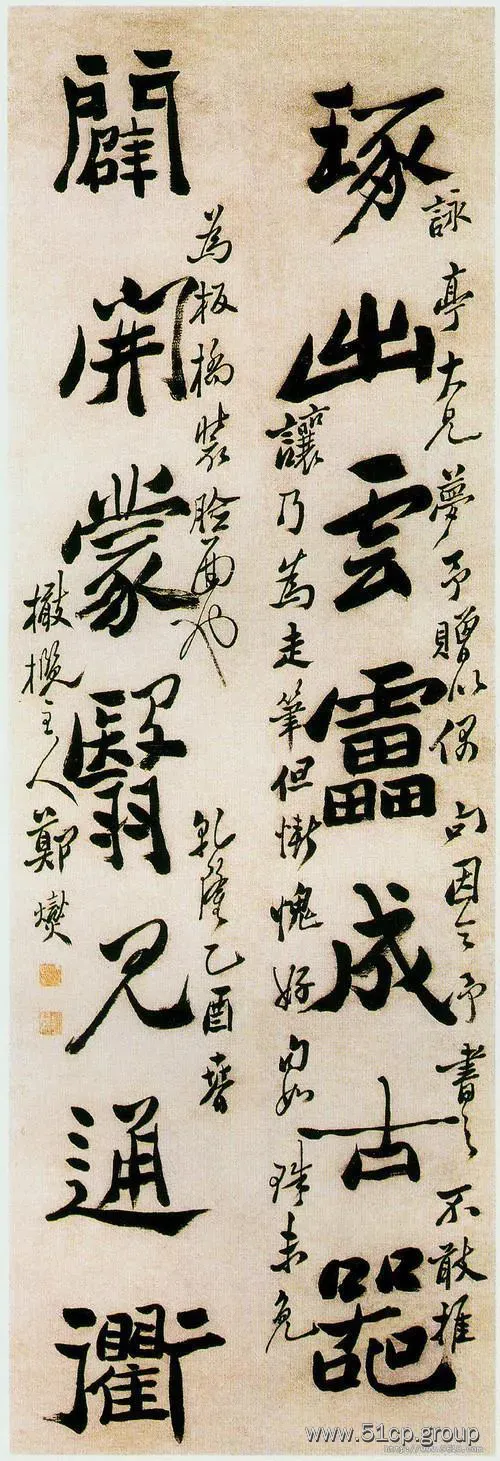 琢出雲靁成古器
詠亭大兄夢予贈以偶句因令予書之不敢推
讓乃為走筆但慚愧好句如珠未免
闢開蒙翳見通衢
為板橋裝臉面也 乾隆乙酉春
橄欖主人鄭燮
www.51cp.group